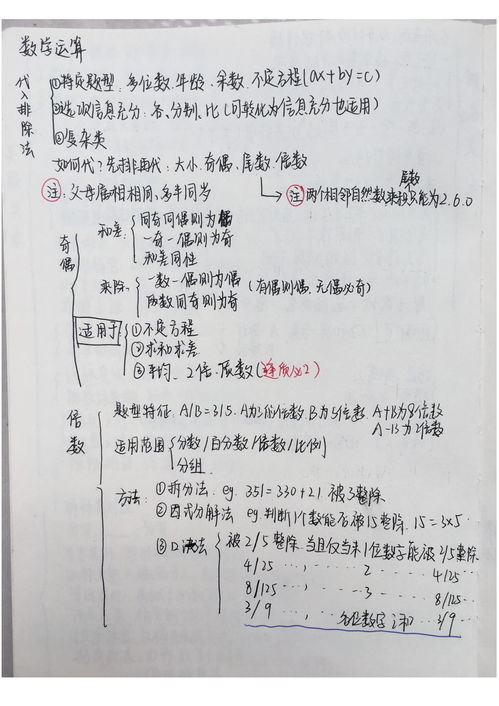 数学运算
代入排除法
①特定题型：多位数.年龄、余数.不定方程(ax+by=c)
②选项信息充分：各、分别、比(可转化为信息充分也适用)
③复杂类
如何代？先排再代：大小.奇偶、尾数.倍数
注：父母属相相同，多半同岁
→注 两个相邻自然数乘积尾数只能为2.6.0
奇偶
和差：
同奇同偶则为偶
一奇一偶则为奇
和差同性
乘除：
一数一偶则为偶
两数同奇则为奇
(有偶则偶.无偶必奇)
适用于
①不定方程
②求和求差
③平均、2倍、质数(逢质必2)
倍数
题型特征：A/B=3/5.A为3的倍数 B为5倍数 A+B为8倍数
A-B为2倍数
适用范围
分数/百分数/倍数/比例
分组
方法：
①拆分法 eg. 351=330+21.被3整除
②因式分解法 eg.判断1个数能否被15整除.15=3×5
③口诀法
被2/5整除.当且仅当末1位数字能被2/5整除
4/25 … 2 … 4/25
8/125 … 3 … 8/125…
3/9 … 各位数字之和…3/9